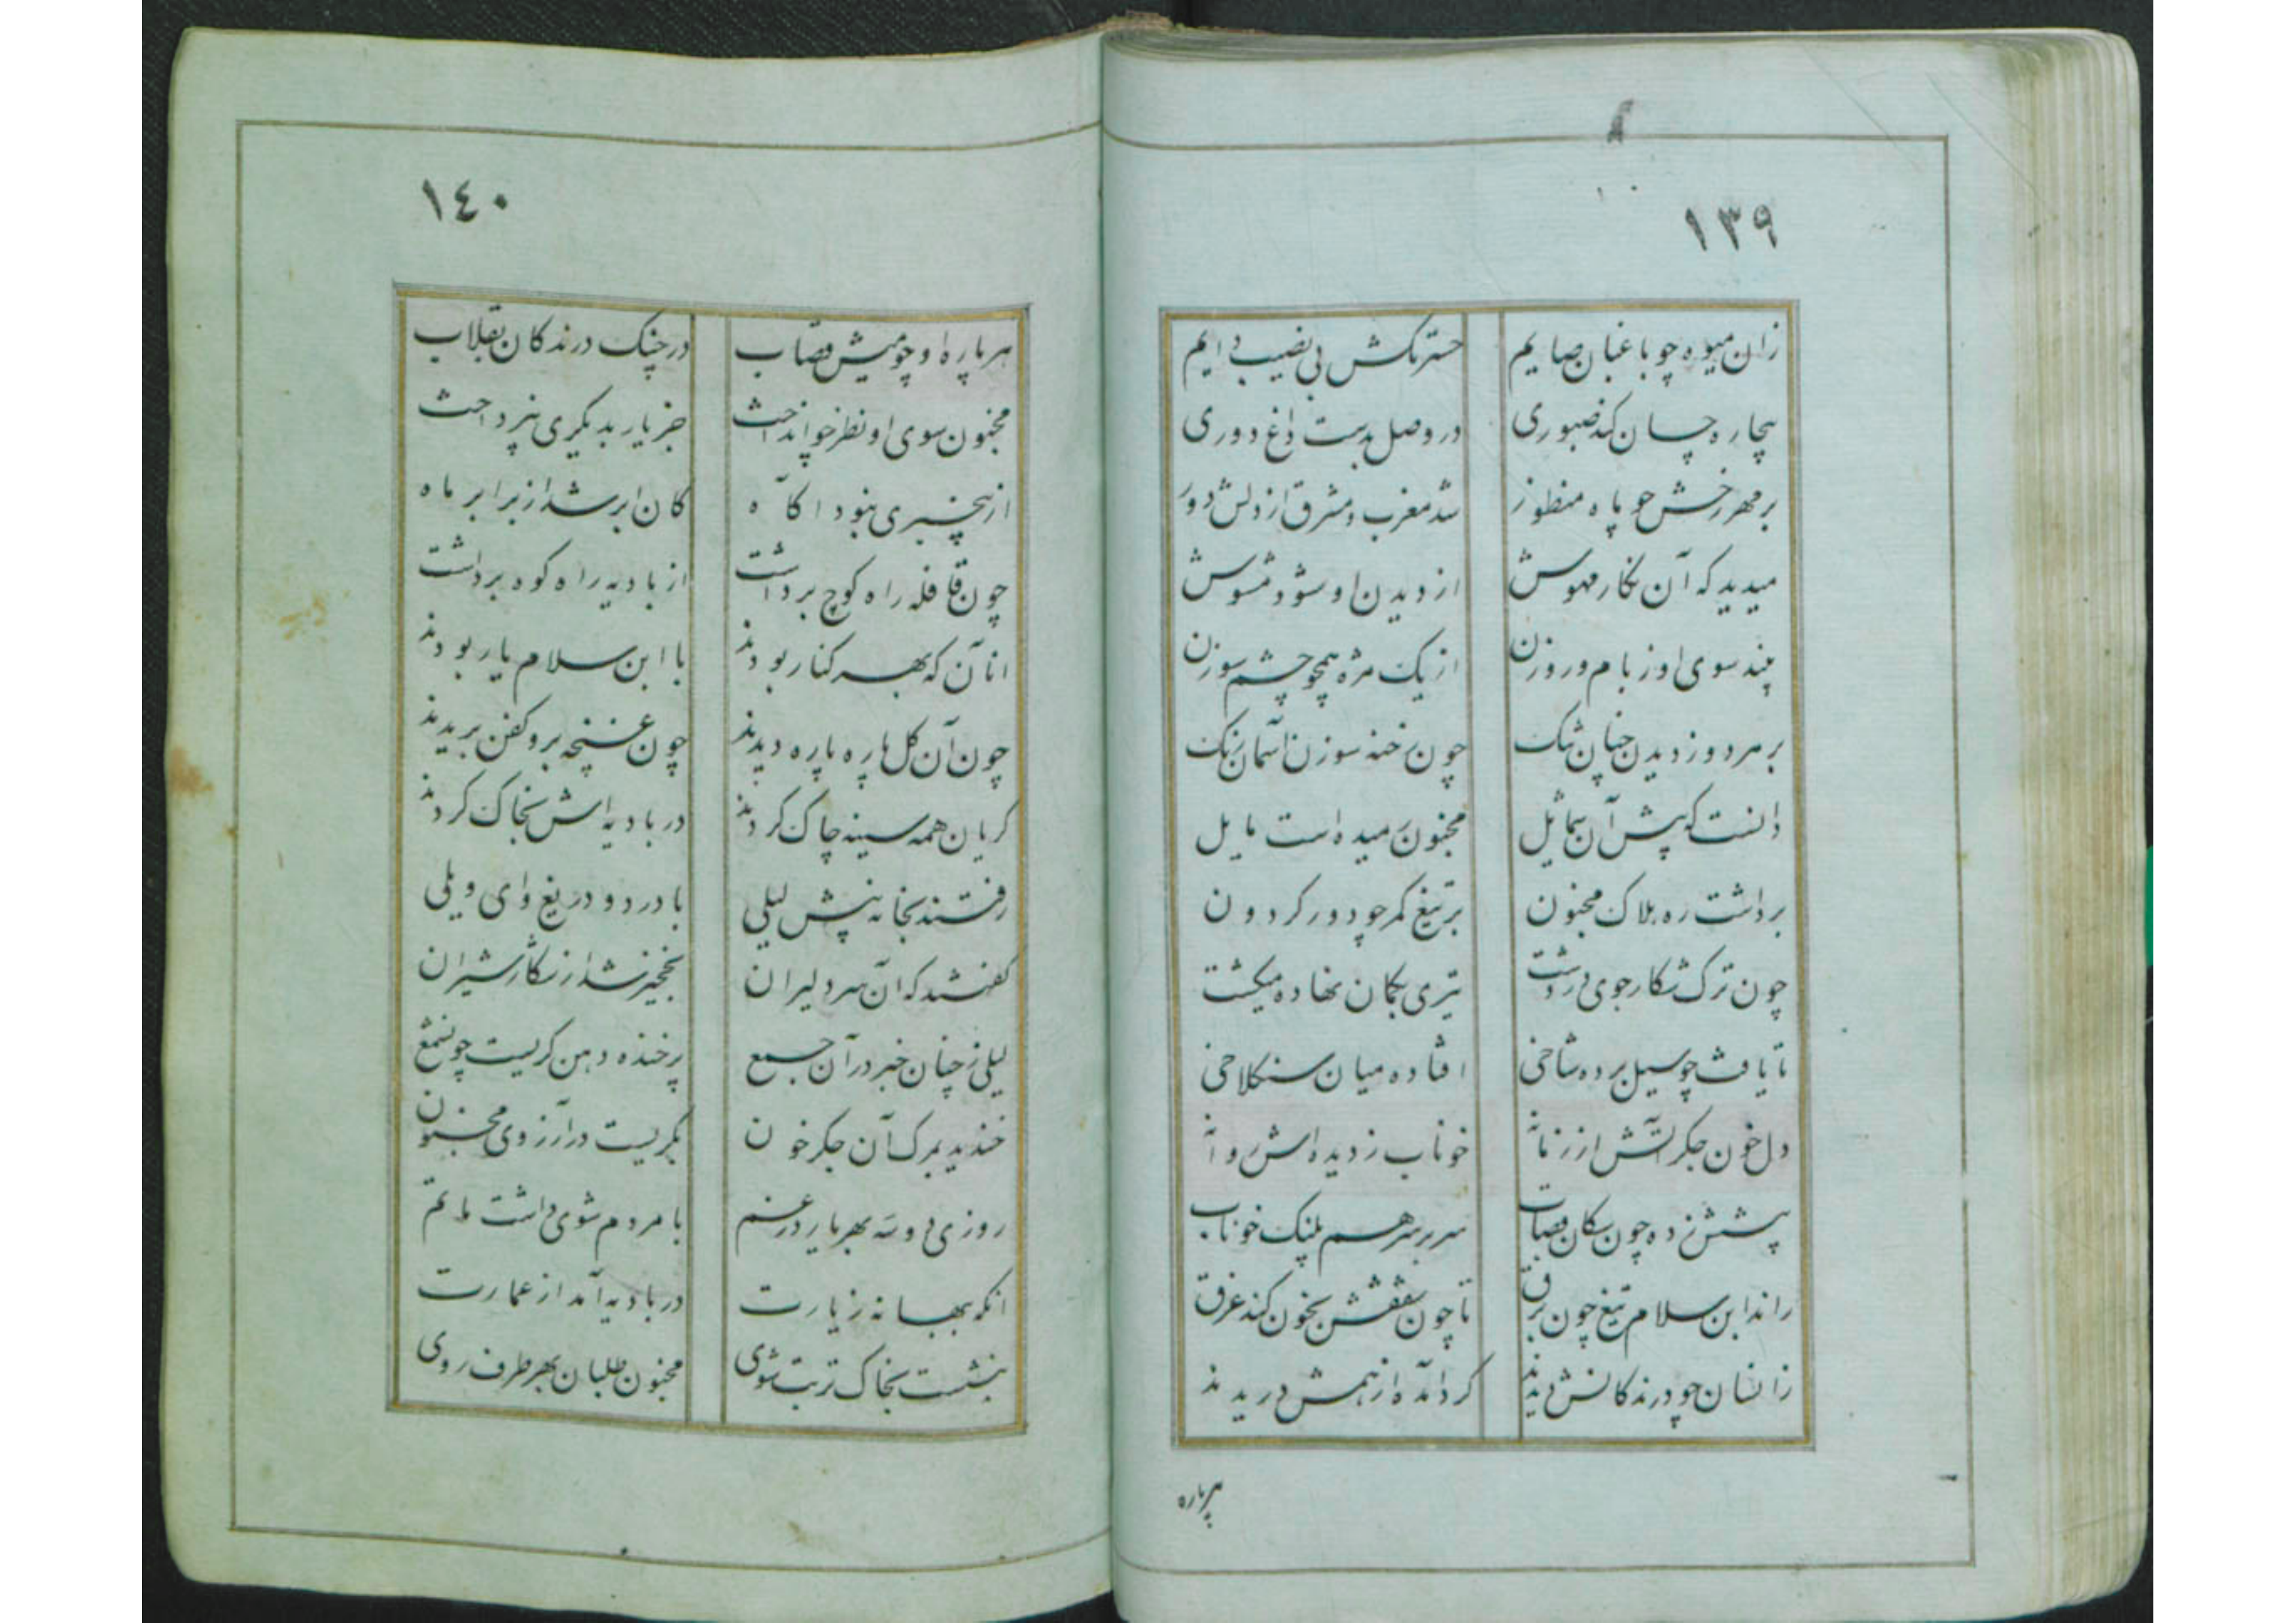 ١٣٩
زان میوه چو باغبان صایم
حسرتکش بی نصیب دایم
بیچاره چسان کند صبوری
در وصل بدست داغ دوری
بر مهر رخش چو پاه منظور
شد مغرب و مشرق از دلش دور
میدید که آن نکار مهوش
از دیدن او شود مشوش
بیند سوی او ز بام و روزن
از یک مژه همچو چشم سوزن
بر مرد و زدیدن چنان تنک
چون رخنه سوزن آسمان رنک
دانست که پیش آن شمائل
مجنون رمیده است مایل
برداشت ره هلاک مجنون
بر تیغ کمر چو دور کردون
چون ترک شکار جوی در دشت
تیری بکمان نهاده میکشت
تا یافت چو سیل برده شاخی
افتاده میان سنکلاخی
دل خون جکر آتش از زمانه
خوناب ز دیده اش روانه
پیشش زده چون سکان قصاب
سر بر سر هم پلنک خوناب
راند ابن سلام تیغ چون برق
تا چون شفقش بخون کند غرق
زانسان چو درندکانش دیدند
کردآمده از همش دریدند
هرپاره
١٤٠
هر پاره او چو میش قصاب
در چنک درندکان بقلاب
مجنون سوی او نظر خو انداخت
جز یار بدیکری نپرداخت
از بیخبری نبود اکاه
کان ابر شد از برابر ماه
چون قافله راه کوچ برداشت
از بادیه راه کوه برداشت
انان که بهر کنار بودند
با ابن سلام یار بودند
چون آن کل پاره پاره دیدند
چون غنچه برو کفن بریدند
کریان همه سینه چاک کردند
در بادیه اش بخاک کردند
رفتند بخانه پیش لیلی
با درد و دریغ وای ویلی
کفتند که آن سر دلیران
نخجیر شد از شکار شیران
لیلی ز چنان خبر در آن جمع
پر خنده دهن کریست چون شمع
خندید بمرک آن جکر خون
بکریست در آرزوی مجنون
روزی دو سه بهر یار در غم
با مردم شوی داشت ماتم
انکه ببهانه زیارت
در بادیه آمد از عمارت
بنشست بخاک تربت شوی
مجنون طلبان بهر طرف روی